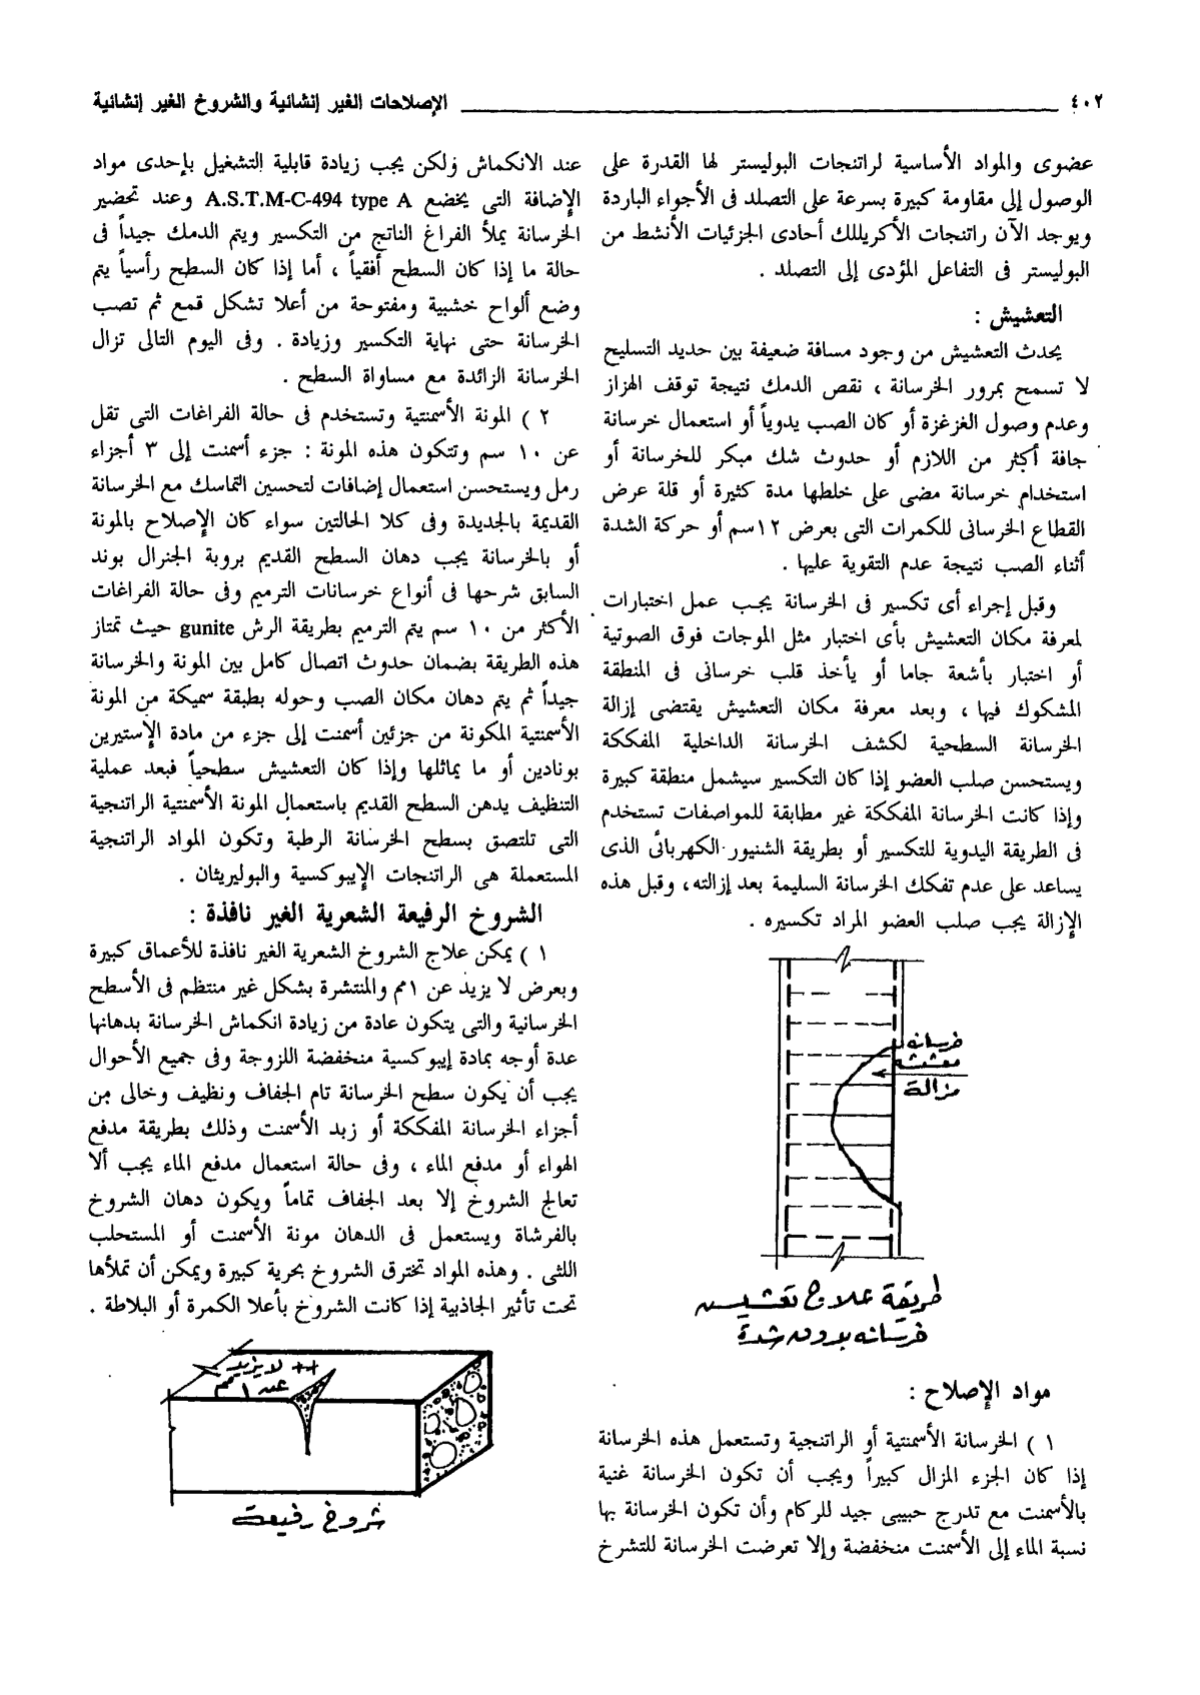 ٤٠٢ الإصلاحات الغير إنشائية والشروخ الغير إنشائية
عضوى والمواد الأساسية لراتنجات البوليستر لها القدرة على
الوصول إلى مقاومة كبيرة بسرعة على التصلد فى الأجواء الباردة
ويوجد الآن راتنجات الأكريللك أحادى الجزئيات الأنشط من
البوليستر فى التفاعل المؤدى إلى التصلد .
التعشيش :
يحدث التعشيش من وجود مسافة ضعيفة بين حديد التسليح
لا تسمح بمرور الخرسانة ، نقص الدمك نتيجة توقف الهزاز
وعدم وصول الغزغزة أو كان الصب يدوياً أو استعمال خرسانة
جافة أكثر من اللازم أو حدوث شك مبكر للخرسانة أو
استخدام خرسانة مضى على خلطها مدة كثيرة أو قلة عرض
القطاع الخرسانى للكمرات التى بعرض ١٢سم أو حركة الشدة
أثناء الصب نتيجة عدم التقوية عليها .
وقبل إجراء أى تكسير فى الخرسانة يجب عمل اختبارات
لمعرفة مكان التعشيش بأى اختبار مثل الموجات فوق الصوتية
أو اختبار بأشعة جاما أو يأخذ قلب خرسانى فى المنطقة
المشكوك فيها ، وبعد معرفة مكان التعشيش يقتضى إزالة
الخرسانة السطحية لكشف الخرسانة الداخلية المفككة
ويستحسن صلب العضو إذا كان التكسير سيشمل منطقة كبيرة
وإذا كانت الخرسانة المفككة غير مطابقة للمواصفات تستخدم
فى الطريقة اليدوية للتكسير أو بطريقة الشنيور الكهربائى الذى
يساعد على عدم تفكك الخرسانة السليمة بعد إزالته، وقبل هذه
الإزالة يجب صلب العضو المراد تكسيره .
خرسانه
معششه
مزالة
طريقة علاج تعشيش
خرسانه بدون شدة
مواد الإصلاح :
١ ) الخرسانة الأسمنتية أو الراتنجية وتستعمل هذه الخرسانة
إذا كان الجزء المزال كبيراً ويجب أن تكون الخرسانة غنية
بالأسمنت مع تدرج حبيبى جيد للركام وأن تكون الخرسانة بها
نسبة الماء إلى الأسمنت منخفضة وإلا تعرضت الخرسانة للتشرخ
عند الانكماش ولكن يجب زيادة قابلية التشغيل بإحدى مواد
الإضافة التى يخضع A.S.T.M-C-494 type A وعند تحضير
الخرسانة يملأ الفراغ الناتج من التكسير ويتم الدمك جيداً فى
حالة ما إذا كان السطح أفقياً ، أما إذا كان السطح رأسياً يتم
وضع ألواح خشبية ومفتوحة من أعلا تشكل قمع ثم تصب
الخرسانة حتى نهاية التكسير وزيادة . وفى اليوم التالى تزال
الخرسانة الزائدة مع مساواة السطح .
٢ ) المونة الأسمنتية وتستخدم فى حالة الفراغات التى تقل
عن ١٠ سم وتتكون هذه المونة : جزء أسمنت إلى ٣ أجزاء
رمل ويستحسن استعمال إضافات لتحسين التماسك مع الخرسانة
القديمة بالجديدة وفى كلا الحالتين سواء كان الإصلاح بالمونة
أو بالخرسانة يجب دهان السطح القديم بروبة الجنرال بوند
السابق شرحها فى أنواع خرسانات الترميم وفى حالة الفراغات
الأكثر من ١٠ سم يتم الترميم بطريقة الرش gunite حيث تمتاز
هذه الطريقة بضمان حدوث اتصال كامل بين المونة والخرسانة
جيداً ثم يتم دهان مكان الصب وحوله بطبقة سميكة من المونة
الأسمنتية المكونة من جزئين أسمنت إلى جزء من مادة الإستيرين
بونادين أو ما يماثلها وإذا كان التعشيش سطحياً فبعد عملية
التنظيف يدهن السطح القديم باستعمال المونة الأسمنتية الراتنجية
التى تلتصق بسطح الخرسانة الرطبة وتكون المواد الراتنجية
المستعملة هى الراتنجات الإيبوكسية والبوليريثان .
الشروخ الرفيعة الشعرية الغير نافذة :
١ ) يمكن علاج الشروخ الشعرية الغير نافذة للأعماق كبيرة
وبعرض لا يزيد عن ١مم والمنتشرة بشكل غير منتظم فى الأسطح
الخرسانية والتى يتكون عادة من زيادة انكماش الخرسانة بدهانها
عدة أوجه بمادة إيبوكسية منخفضة اللزوجة وفى جميع الأحوال
يجب أن يكون سطح الخرسانة تام الجفاف ونظيف وخالى من
أجزاء الخرسانة المفككة أو زبد الأسمنت وذلك بطريقة مدفع
الهواء أو مدفع الماء ، وفى حالة استعمال مدفع الماء يجب ألا
تعالج الشروخ إلا بعد الجفاف تماماً ويكون دهان الشروخ
بالفرشاة ويستعمل فى الدهان مونة الأسمنت أو المستحلب
اللثى . وهذه المواد تخترق الشروخ بحرية كبيرة ويمكن أن تملأها
تحت تأثير الجاذبية إذا كانت الشروخ بأعلا الكمرة أو البلاطة .
++ لا يزيد
عن ١ مم
شروخ رفيعة